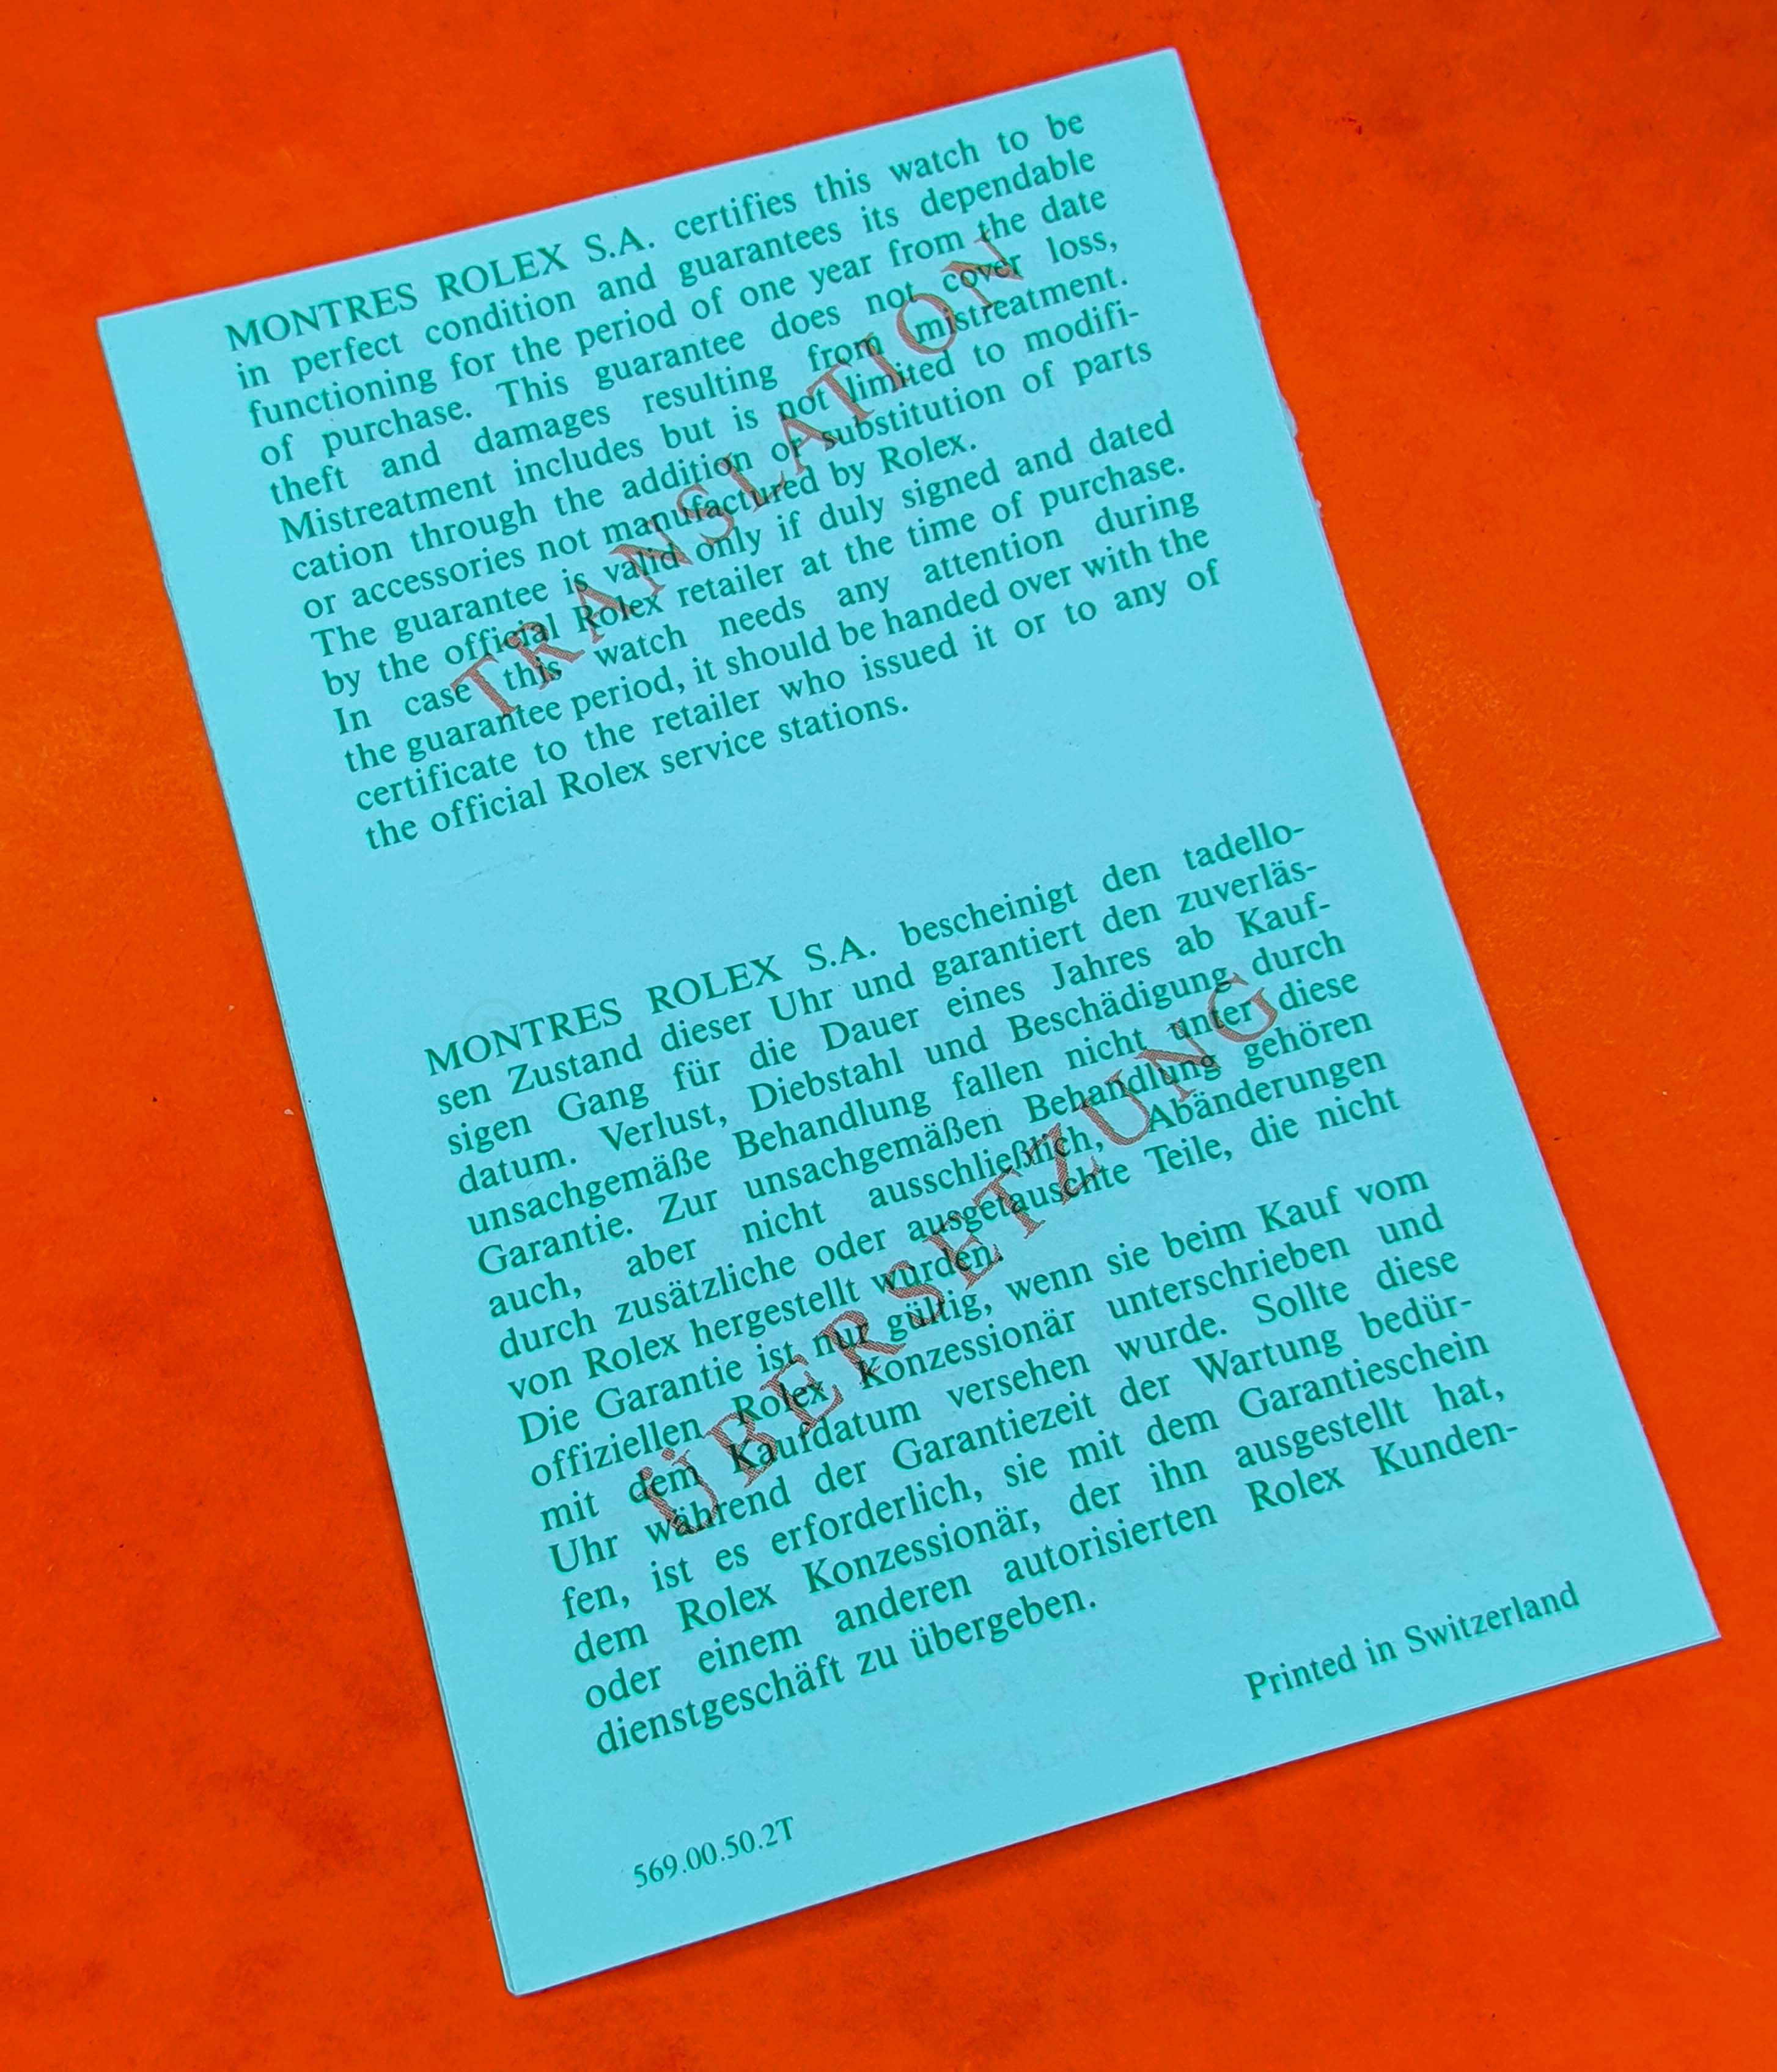 MONTRES ROLEX S.A. certifies this watch to be
in perfect condition and guarantees its dependable
functioning for the period of one year from the date
of purchase. This guarantee does not cover loss,
theft and damages resulting from mistreatment.
Mistreatment includes but is not limited to modifi-
cation through the addition or substitution of parts
or accessories not manufactured by Rolex.
The guarantee is valid only if duly signed and dated
by the official Rolex retailer at the time of purchase.
In case this watch needs any attention during
the guarantee period, it should be handed over with the
certificate to the retailer who issued it or to any of
the official Rolex service stations.
TRANSLATION
MONTRES ROLEX S.A. bescheinigt den tadello-
sen Zustand dieser Uhr und garantiert den zuverläs-
sigen Gang für die Dauer eines Jahres ab Kauf-
datum. Verlust, Diebstahl und Beschädigung durch
unsachgemäße Behandlung fallen nicht unter diese
Garantie. Zur unsachgemäßen Behandlung gehören
auch, aber nicht ausschließlich, Abänderungen
durch zusätzliche oder ausgetauschte Teile, die nicht
von Rolex hergestellt wurden.
Die Garantie ist nur gültig, wenn sie beim Kauf vom
offiziellen Rolex Konzessionär unterschrieben und
mit dem Kaufdatum versehen wurde. Sollte diese
Uhr während der Garantiezeit der Wartung bedür-
fen, ist es erforderlich, sie mit dem Garantieschein
dem Rolex Konzessionär, der ihn ausgestellt hat,
oder einem anderen autorisierten Rolex Kunden-
dienstgeschäft zu übergeben.
ÜBERSETZUNG
Printed in Switzerland
569.00.50.2T